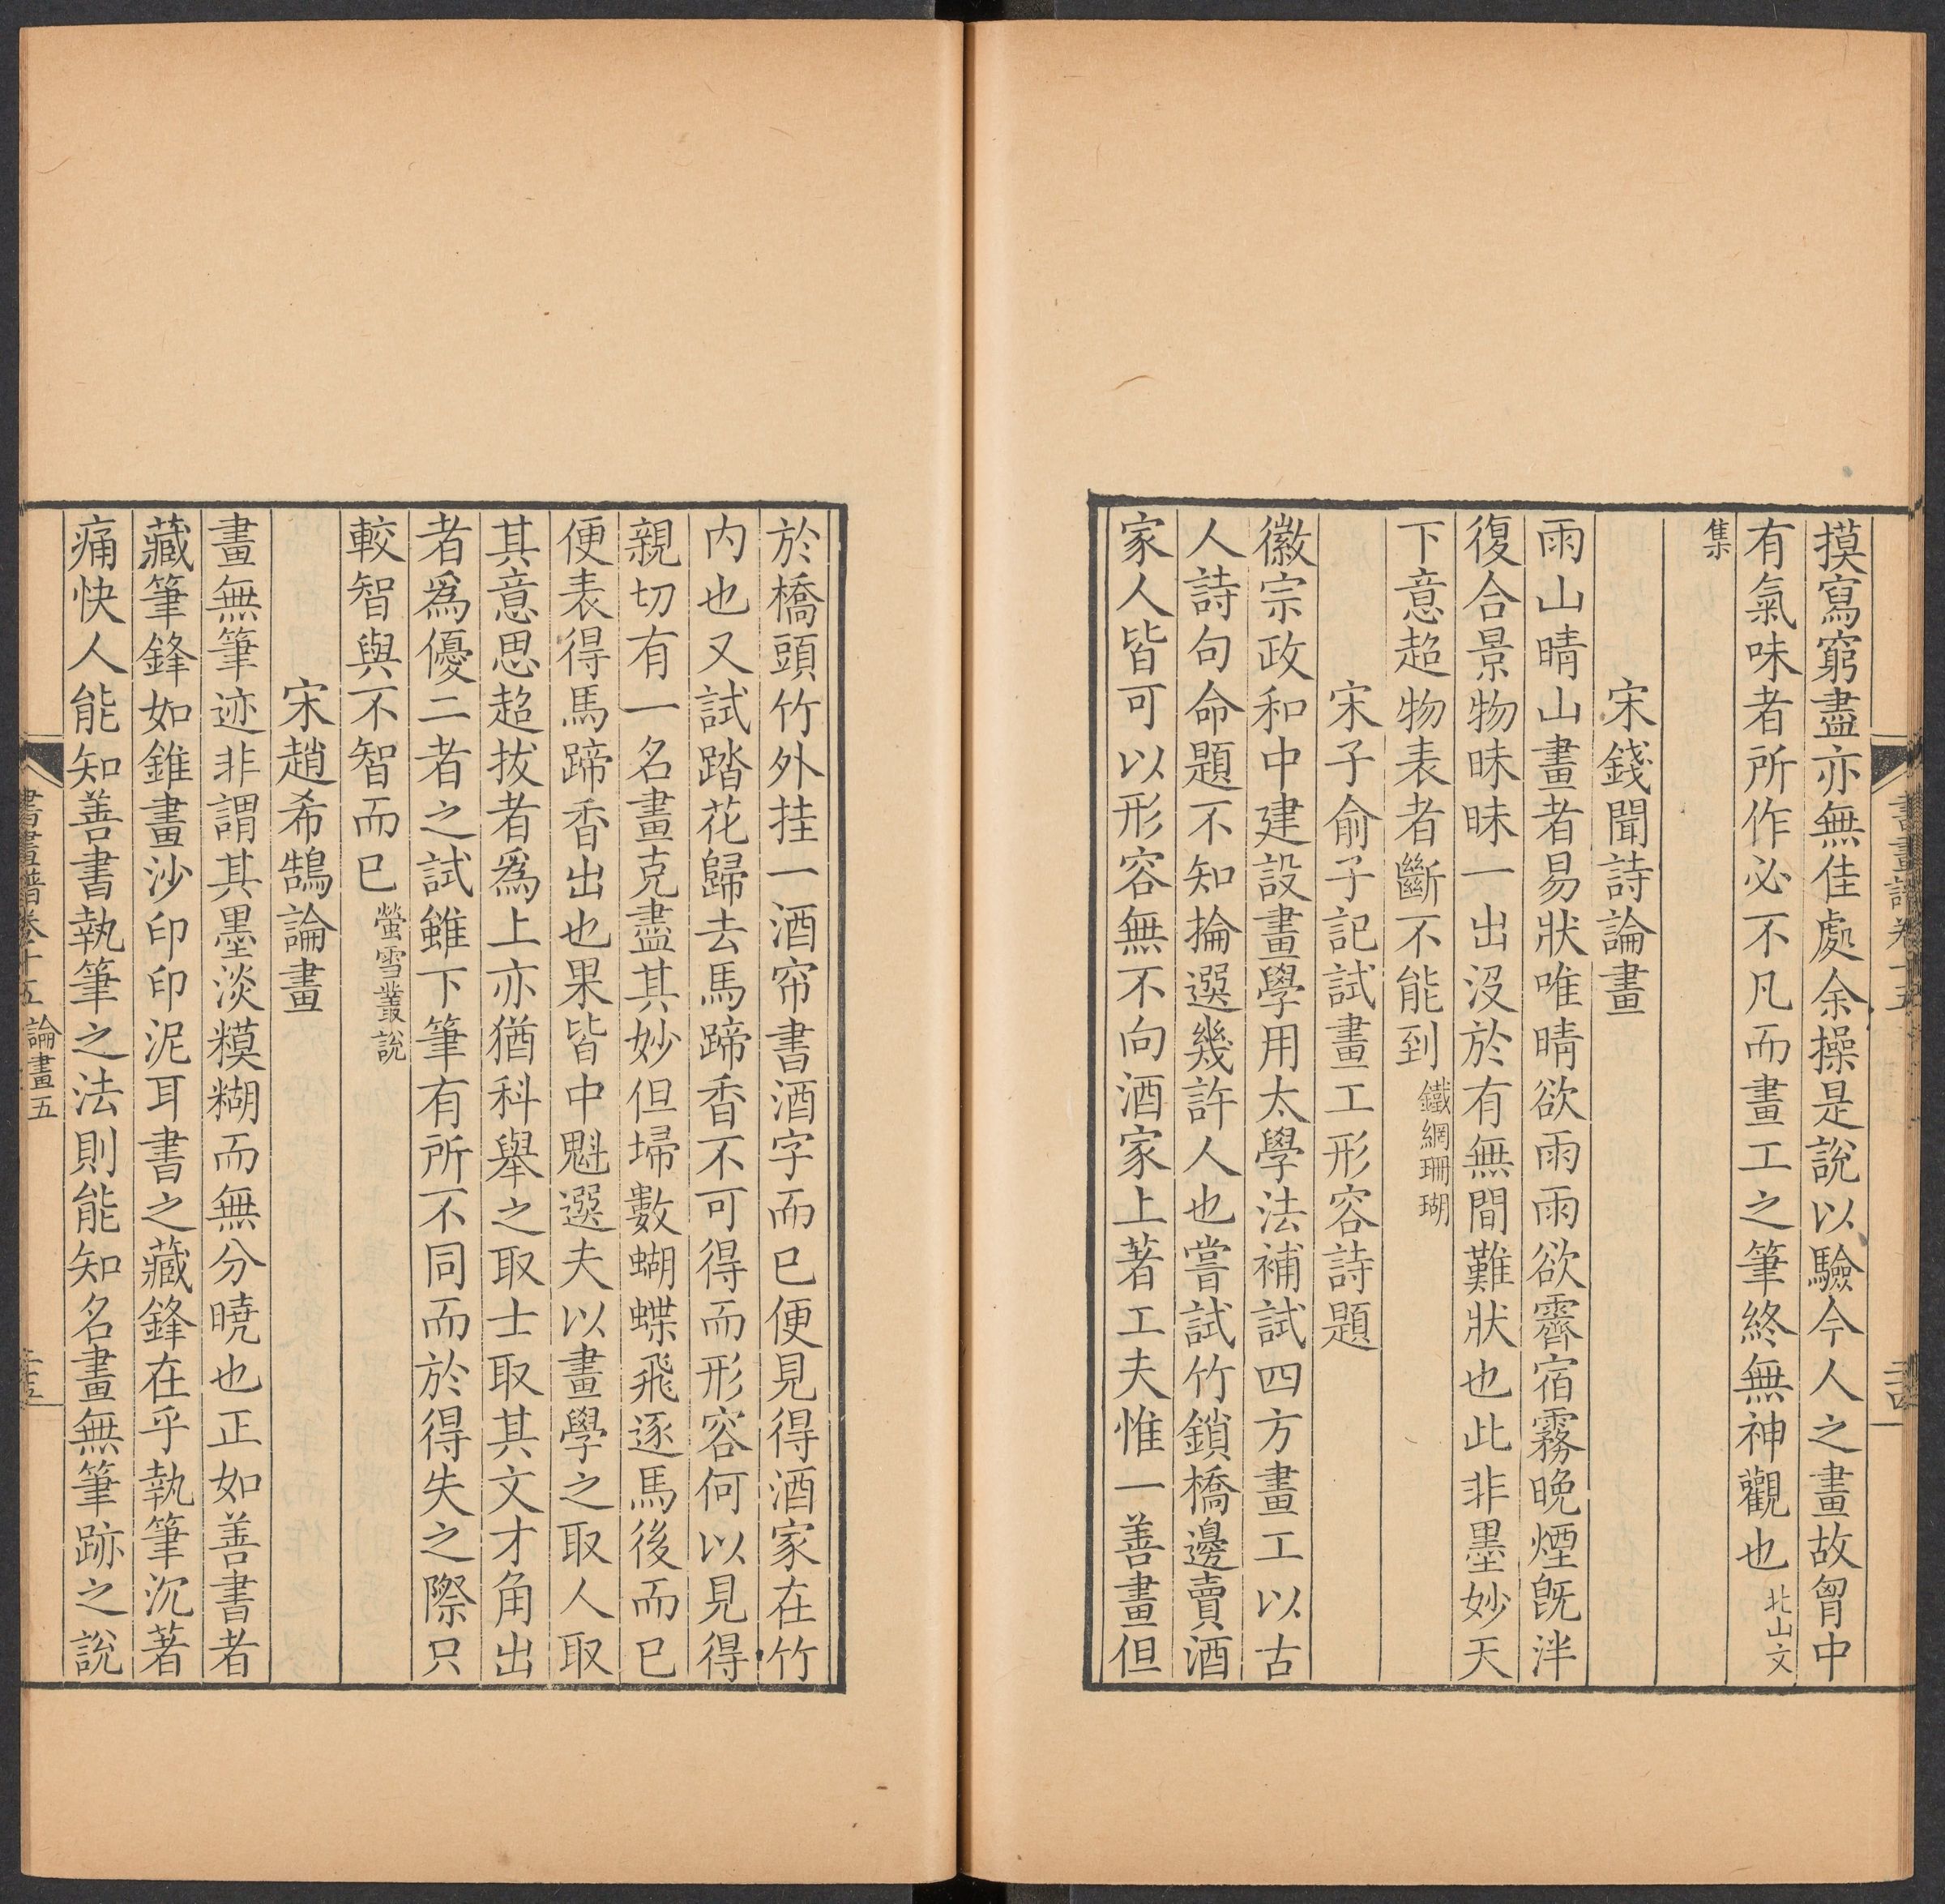 摸寫窮盡亦無佳處余操是說以驗今人之畫故胷中
有氣味者所作必不凡而畫工之筆終無神觀也北山文
集
宋錢聞詩論畫
雨山晴山畫者易狀唯晴欲雨雨欲霽宿霧晚煙旣泮
復合景物昧昧一出沒於有無間難狀也此非墨妙天
下意超物表者斷不能到鐵網珊瑚
宋子俞子記試畫工形容詩題
徽宗政和中建設畫學用太學法補試四方畫工以古
人詩句命題不知掄選幾許人也嘗試竹鎖橋邊賣酒
家人皆可以形容無不向酒家上著工夫惟一善畫但
於橋頭竹外挂一酒帘書酒字而已便見得酒家在竹
內也又試踏花歸去馬蹄香不可得而形容何以見得
親切有一名畫克盡其妙但埽數蝴蝶飛逐馬後而已
便表得馬蹄香出也果皆中魁選夫以畫學之取人取
其意思超拔者爲上亦猶科舉之取士取其文才角出
者爲優二者之試雖下筆有所不同而於得失之際只
較智與不智而已螢雪叢說
宋趙希鵠論畫
畫無筆迹非謂其墨淡糢糊而無分曉也正如善書者
藏筆鋒如錐畫沙印印泥耳書之藏鋒在乎執筆沉著
痛快人能知善書執筆之法則能知名畫無筆跡之說
書畫譜卷十五 論畫五